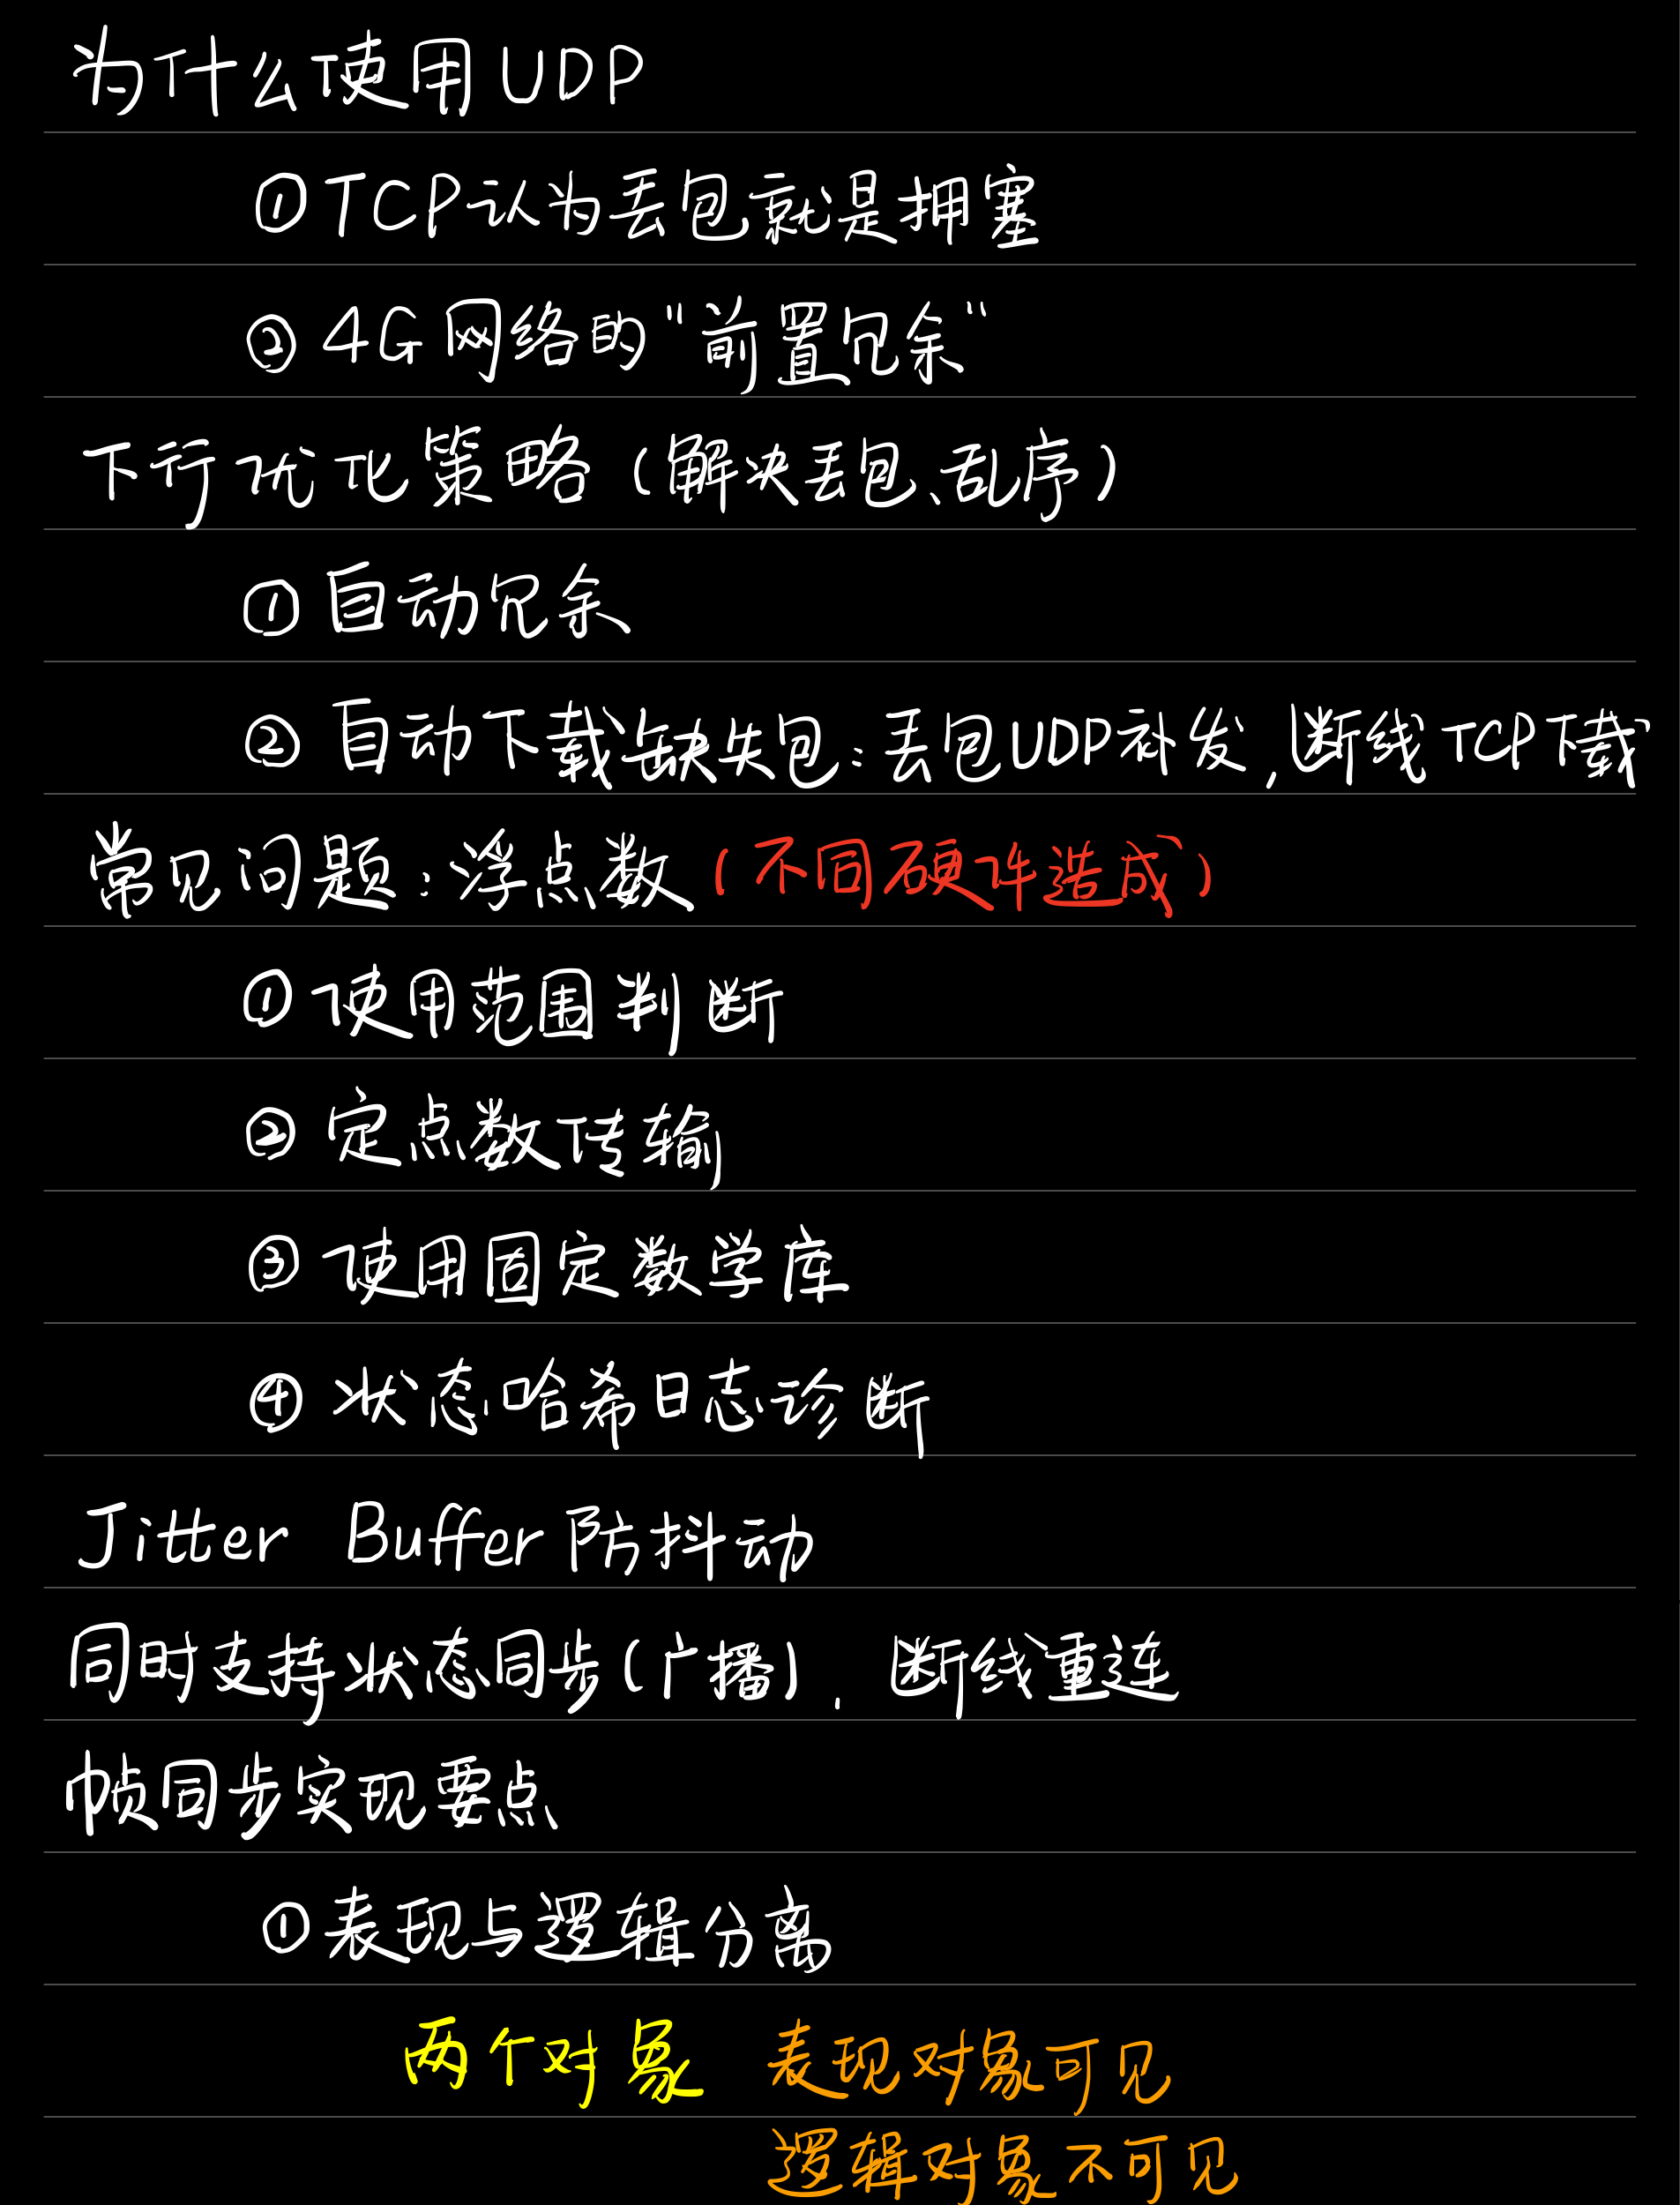 为什么使用UDP
①TCP认为丢包就是拥塞
②4G网络的"前置冗余"
下行优化策略(解决丢包、乱序)
①自动冗余
②自动下载缺失包:丢包UDP补发,断线TCP下载
常见问题:浮点数(不同硬件造成)
①使用范围判断
②定点数传输
③使用固定数学库
④状态哈希日志诊断
Jitter Buffer防抖动
同时支持状态同步(广播),断线重连
帧同步实现要点
①表现与逻辑分离
两个对象 表现对象可见
逻辑对象不可见